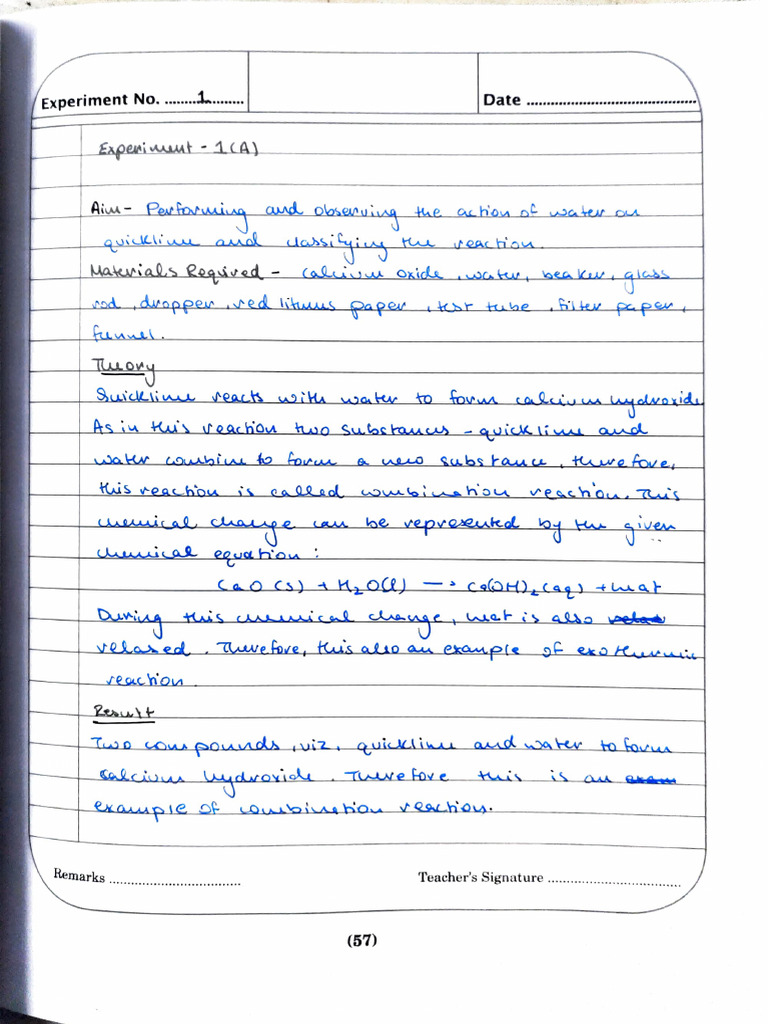 Experiment No. ........1.......... Date ..........................................
Experiment - 1(A)
Aim - Performing and observing the action of water on
quicklime and classifying the reaction.
Materials Required - calcium oxide, water, beaker, glass
rod, dropper, red litmus paper, test tube, filter paper,
funnel.
Theory
Quicklime reacts with water to form calcium hydroxide
As in this reaction two substances - quicklime and
water combine to form a new substance, therefore,
this reaction is called combination reaction. This
chemical change can be represented by the given
chemical equation :
CaO (s) + H₂O(l) → Ca(OH)₂ (aq) + heat
During this chemical change, heat is also
relased. Therefore, this also an example of exothermic
reaction.
Result
Two compounds, viz, quicklime and water to form
calcium hydroxide. Therefore this is an
example of combination reaction.
Remarks ................................ Teacher's Signature ................................
(57)